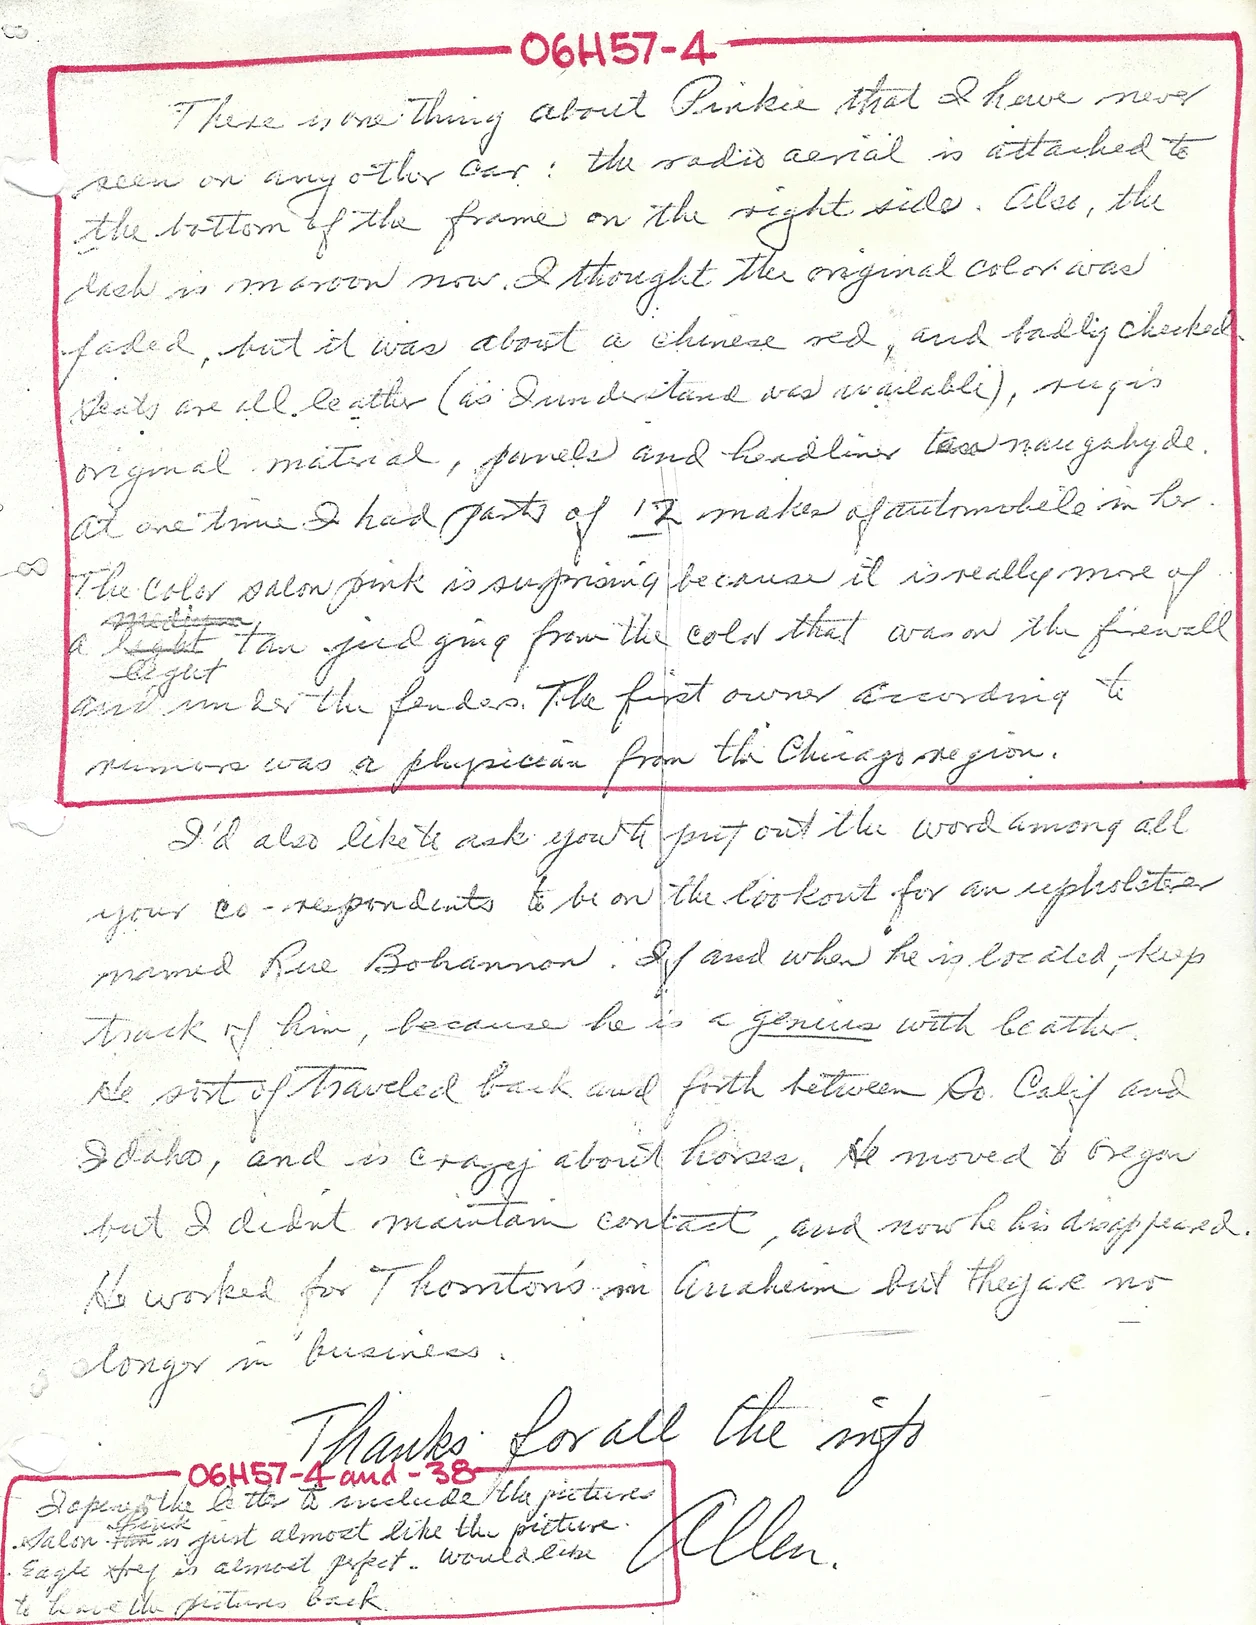 06H57-4
There is one thing about Pinkie that I have never
seen on any other car: the radio aerial is attached to
the bottom of the frame on the right side. Also, the
dash is maroon now. I thought the original color was
faded, but it was about a chinese red, and badly checked.
Seats are all leather (as I understand was available), rug is
original material, panels and headliner tan naugahyde.
At one time I had parts of 12 makes of automobile in her.
The color salon pink is surprising because it is really more of
medium
a light tan judging from the color that was on the firewall
light
and under the fenders. The first owner according to
rumors was a physician from the Chicago region.
I'd also like to ask you to put out the word among all
your co-respondents to be on the lookout for an upholsterer
named Rue Bohannon. If and when he is located, keep
track of him, because he is a genius with leather.
He sort of traveled back and forth between So. Calif and
Idaho, and is crazy about horses. He moved to Oregon
but I didnt maintain contact, and now he his disappeared.
He worked for Thornton's in Anaheim but they are no
longer in business.
Thanks for all the info
Allen.
06H57-4 and -38
I open the letter to include the pictures
pink
Salon is just almost like the picture.
Eagle grey is almost perfect. Would like
to have the pictures back.